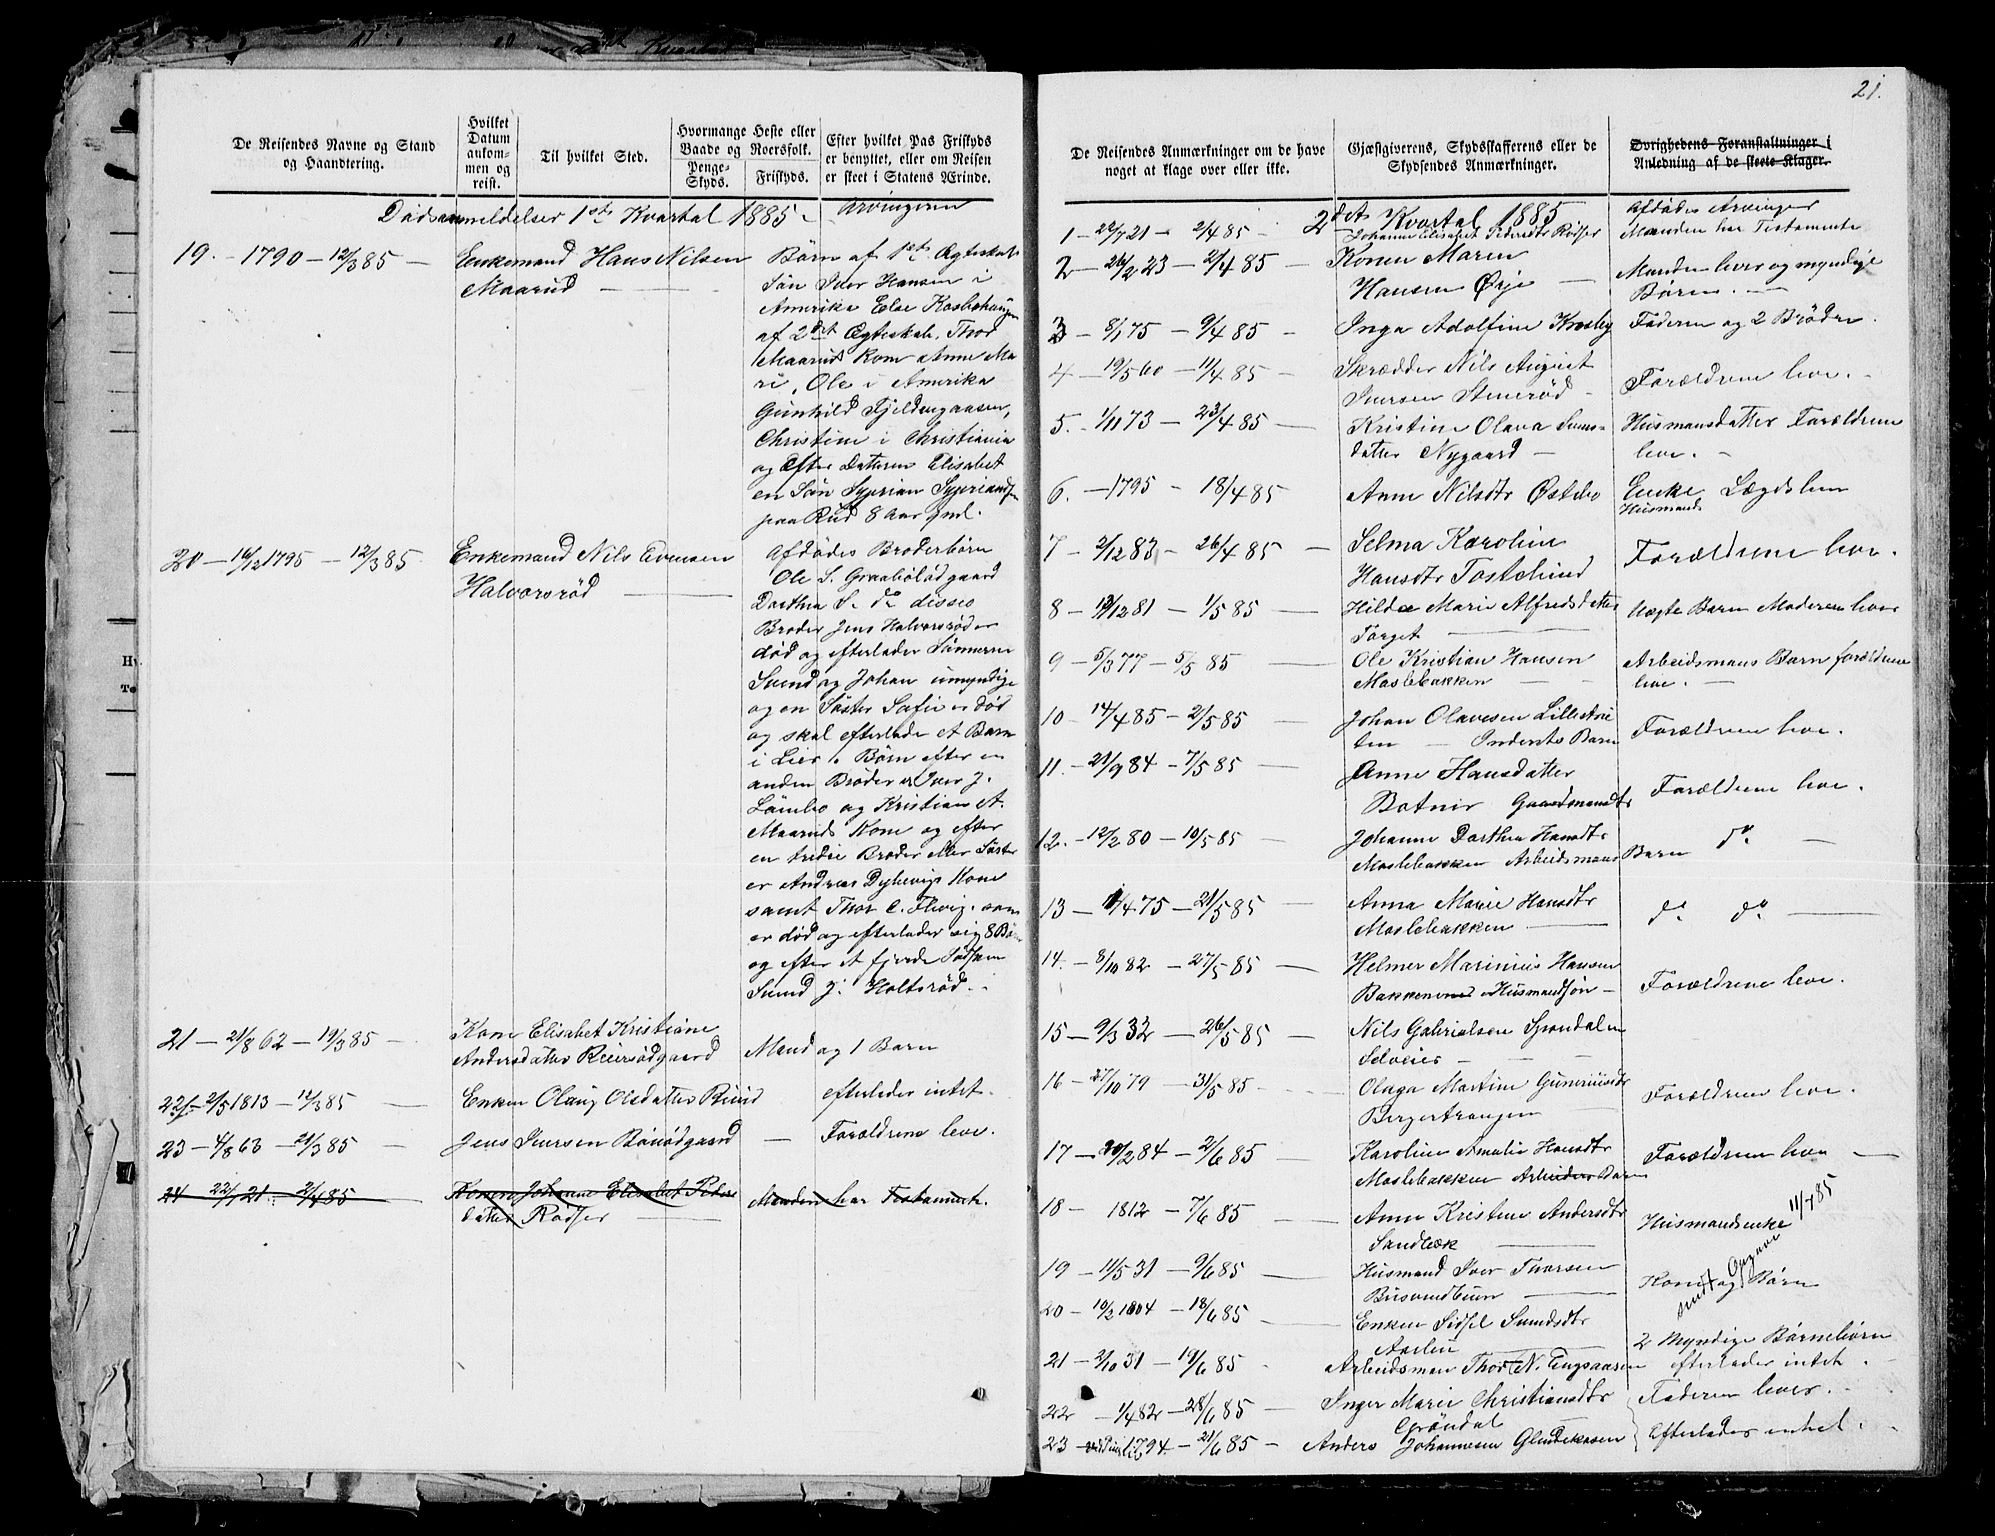 De Reisendes Navne og Stand
og Haandtering.
Hvilket
Datum
ankom-
men og
reist.
Til hvilket Sted.
Hvormange Heste eller
Baade og Roersfolk.
Penge-
Skyds.
Friskyds.
Efter hvilket Pas Friskyds
er benyttet, eller om Reisen
er skeet i Statens Ærinde.
Dødsanmeldelser 1ste Kvartal 1885 - Arvingerne
19. - 1790 - 12/3 85 - Enkemand Hans Nilsen
Maarud
Børn af 1ste Ægteskab
Søn Iver Hansen i
Amerika Else
af 2det Ægteskab. Thor
Maaruds Kone Anne Ma-
ri, Ole i Amerika
Gunhild
Christine i Christiania
og Efter Datteren Elisabet
en Søn Syprian
paa Rud 8 Aar gml.
20 - 14/12 1795 - 12/3 85 Enkemand Nils Evensen
Halvorsrød
Afdødes Broderbørn
Ole S.
Dorthea S. do disses
Broder Jens Halvorsrød er
død og efterlader Sønnerne
Svend og Johan umyndige
og en Søster Sofie er død
og skal efterlade et Barn
i Lier. Børn efter en
anden Broder er Iver J.
Lømbo og Kristian A.
Maaruds Kone og efter
en tredie Broder eller Søster
er Andreas Dyblevigs Kone
samt Thor C. Flevig. som
er død og efterlader sig 8 Børn
og efter et fjerde
Svend J. Holtsrød.
21 - 21/8 62 - 19/3 85 - Kone Elisabet Kristiane
Andersdatter Reiersødgaard Mand og 1 Barn
22 - 2/5 1813 - 17/3 85 - Enken Olaug Olsdatter Rund efterlader intet.
23 - 4/8 63 - 21/3 85 - Jens Iversen Bønødgaard - Forældrene leve.
24 22/7 21. 2/4 85 Konen Johanne Elisabet Peders
datter Rødser Manden har Testamente.
21.
De Reisendes Anmærkninger om de have
noget at klage over eller ikke.
Gjæstgiverens, Skydsskafferens eller de
Skydsendes Anmærkninger.
Øvrighedens Foranstaltninger i
Anledning af de skeete Klager.
2det Kvartal 1885
Afdødes Arvinger
1 - 22/7 21 - 2/4 85 - Johanne Elisabet Pedersdtr Rødser Manden har Testamente
2 - 26/2 23 - 2/4 85 - Konen Maren
Hansen Ørje - Manden lever og myndige
Børn. -
3 - 8/1 75 - 9/4 85 - Inga Adolfine Krosby Faderen og 2 Brødre.
4 - 19/5 60 - 11/4 85 - Skrædder Nils August
Iversen Stenerød - Forældrene leve. -
5. - 1/11 73 - 23/4 85 - Kristine Olava Svens-
datter Nygaard - Husmansdatter Forældrene
leve. -
6. - 1795 - 18/4 85 Anne Nilsdtr Østebo Enke Lægdslem
Husmands
7 - 2/12 83 - 26/4 85 - Selma Karoline
Hansdtr Tostelund Forældrene leve.
8 - 13/12 81 - 1/5 85 - Hilda Marie Alfredsdatter
Torget Uægte Barn Moderen lever
9 - 5/3 77 - 5/5 85 - Ole Kristian Hansen
Moslebakken - Arbeidsmans Barn forældrene
leve. -
10 - 14/4 85 - 2/5 85 - Johan Olavesen Lillestrie
ten - Inderste Barn Forældrene leve.
11. - 21/9 84 - 7/5 85 - Anne Hansdatter
Botner Gaardmandsdtr Forældrene leve.
12. - 12/2 80 - 10/5 85 - Johanne Dorthea Hansdtr
Moslebakken Arbeidsmans Barn do -
13 - 11/4 75 - 21/5 85 - Anna Marie Hansdtr
Moslebakken - do do -
14. - 8/10 82 - 27/5 85 - Helmer Marinius Hansen
Bakkenenes Husmandsøn - Forældrene leve.
15 - 9/3 32 - 26/5 85 - Nils Gabrielsen Grøndalen
Selveier - -
16 - 27/10 79 - 31/5 85 - Olaga Martine Guneriusdtr
Bergertrangen - Forældrene leve.
17 - 20/2 84 - 2/6 85 - Karoline Amalie Hansdtr
Moslebakken Arbeiders Barn Forældrene leve -
18 - 1812 - 7/6 85 - Anne Kristine Andersdtr
Sandbæk - Husmandsenke
19 - 11/5 31 - 9/6 85 - Husmand Iver Thorsen
- Kone og Børn
sendt Opgave 11/7 85
20 - 10/2 1804 - 18/6 85 - Enken Sidsel Svendsdtr
Aarlien - 2 Myndige Børnebørn
21 - 2/10 31 - 19/6 85 - Arbeidsman Thor N. Engsaasen efterlader intet.
22 - 1/4 82 - 28/6 85 - Inger Marie Christiansdtr
Grøndal Faderen lever. -
23 - 1794 - 21/6 85 - Anders Johannesen Glendekasen Efterlader intet. -